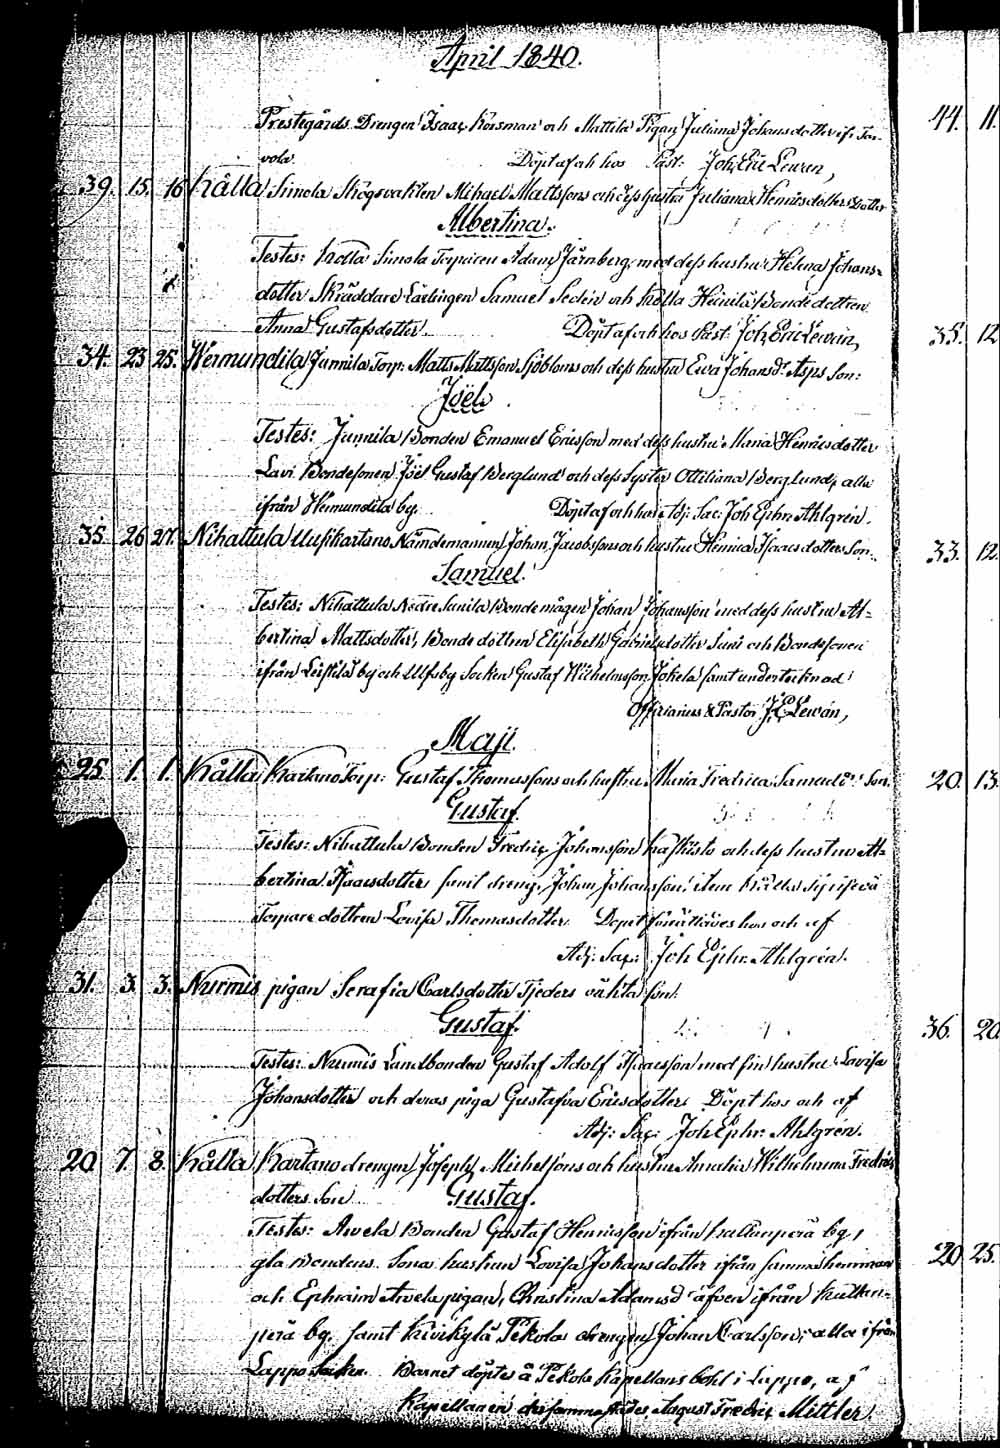 April 1840.
Prestegårds Drengen Isaac Korsman och Mattila Pigan Juliana Johansdotter if:
vola. Döpt af och hos Past: Joh. Eric Lewan,
39. 15. 16 Kålla Simola Skogsvakten Michael Mattssons och dess hustru Juliana Henricsdotters Dotter
Albertina.
Testes: Kolla Simola Torparen Adam Järnberg, med dess hustru Helena Johans-
dotter Skräddare Lärlingen Samuel Sedén och Kolla Heinilä Bondedottren
Anna Gustafsdotter. Döpt af och hos Past: Joh. Eric Lewan,
34. 23 25. Heimundila Junnila Torp: Matts Mattsson Sjöbloms och dess hustru Eva Johansdr Asps Son:
Joël.
Testes: Junnila Bonden Emanuel Ericsson med dess hustru Maria Henricsdotter
Lavi Bondesonen Joël Gustaf Berglund och dess Syster Ottiliana Berglund, alla
ifrån Heimundila by. Döpt af och hos Adj: Sac: Joh Ephr. Ahlgrén.
35. 26 27. Nihattula Uusikartano Nämndemannen Johan Jacobssons och hustru Henrica Isaacsdotters Son:
Samuel.
Testes: Nihattula Nedre Sanila Bondemågen Johan Johansson med dess hustru Al-
bertina Mattsdotter, Bondedottren Elisabeth Gabrielsdotter Suni och Bondesonen
ifrån Leistilä by och Ulfsby Socken Gustaf Wilhelmsson Jokela samt undertecknad
Officiarius & Pastor J. E. Lewan,
Maji.
25. 1. 1. Kålla Kartano Torp: Gustaf Thomassons och hustru Maria Fredrica Samuelsdr Son
Gustaf.
Testes: Nihattula Bonden Fredric Johansson och dess hustru Al-
bertina Isaacsdotter, samt dreng. Johan Johansson, item Kålla
Torparedottren Lovisa Thomasdotter. Dopet förrättades hos och af
Adj: Sac: Joh Ephr. Ahlgrén.
31. 3. 3. Nurmis pigan Serafia Carlsdotter Tjeders oäkta son.
Gustaf.
Testes: Nurmis Landbonden Gustaf Adolf Isacsson med sin hustru Lovisa
Johansdotter och deras piga Gustafva Ericsdotter. Döpt hos och af
Adj: Sac: Joh Ephr. Ahlgrén.
20. 7. 8. Kålla Kartano drengen Joseph Michelssons och hustru Amalia Wilhelmina Fredrics
dotters Son Gustaf.
Testes: Awela Bonden Gustaf Henricsson ifrån Kuttanperä by,
gla Bondens Sonas hustrun Lovisa Johansdotter ifrån samma hemman
och Ephraim Awela pigan, Christina Adamsdr äfven ifrån Kuttan-
perä by, samt Kivikylä Pekola drengen Johan Carlsson, alla ifrån
Lappo Socken. Barnet döptes å Pekola Kapellans bohl i Lappo, af
Kapellanen därsammastädes August Fredric Mittler.
44. 11.
35. 12
33. 12.
20. 13.
36. 20
20 25.